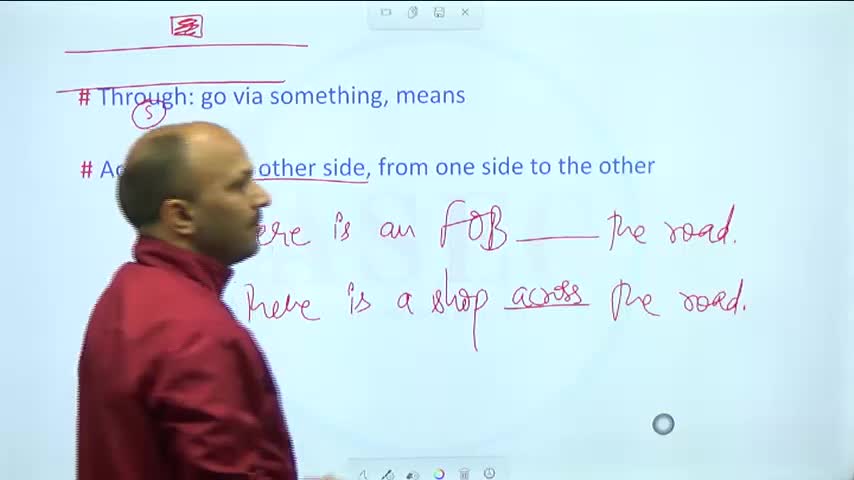 # Through: go via something, means
S
# other side, from one side to the other
is an FOB ____ the road.
There is a shop across the road.